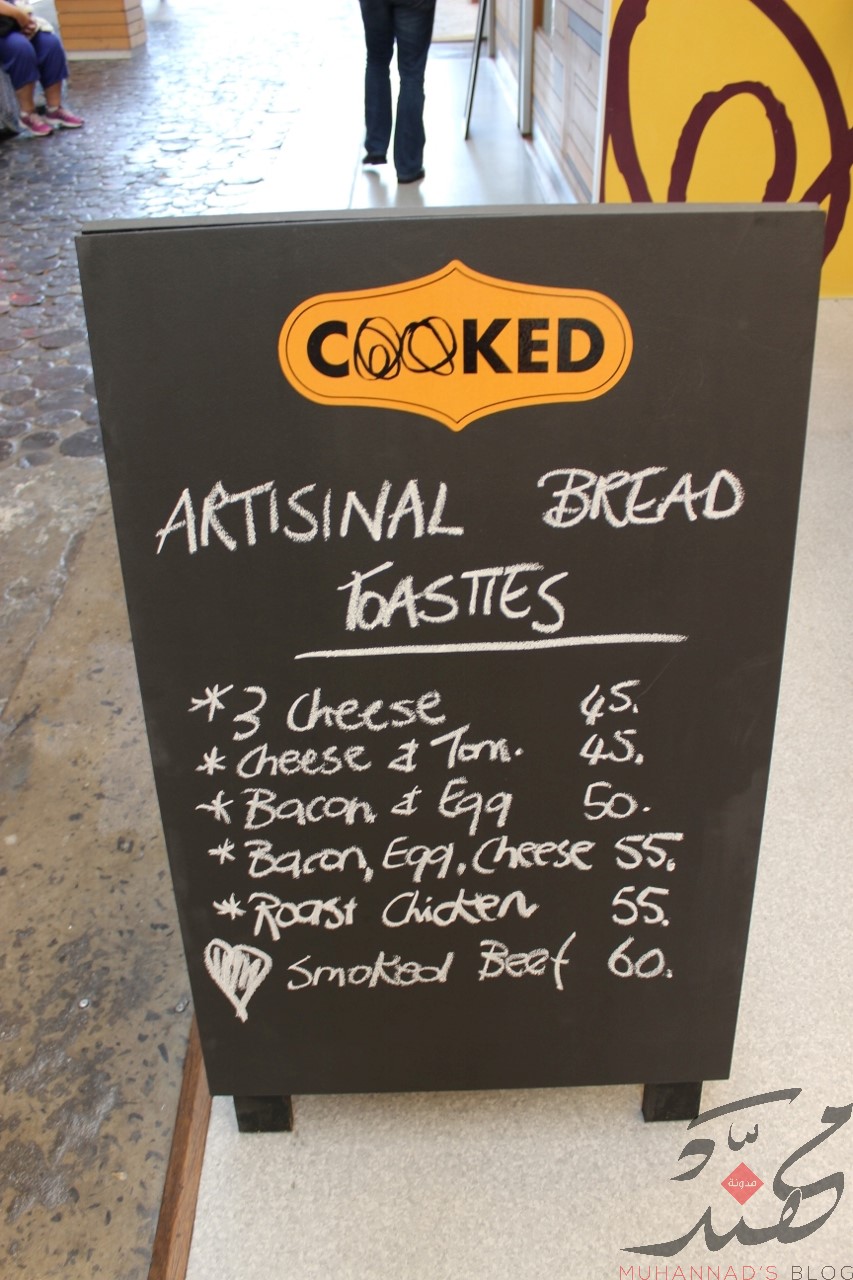 COOKED
ARTISINAL BREAD
TOASTIES
*3 Cheese 45.
*Cheese & Tom. 45.
*Bacon & Egg 50.
*Bacon, Egg, Cheese 55.
*Roast Chicken 55.
Smoked Beef 60.
مهند
مدونة
MUHANNAD'S BLOG